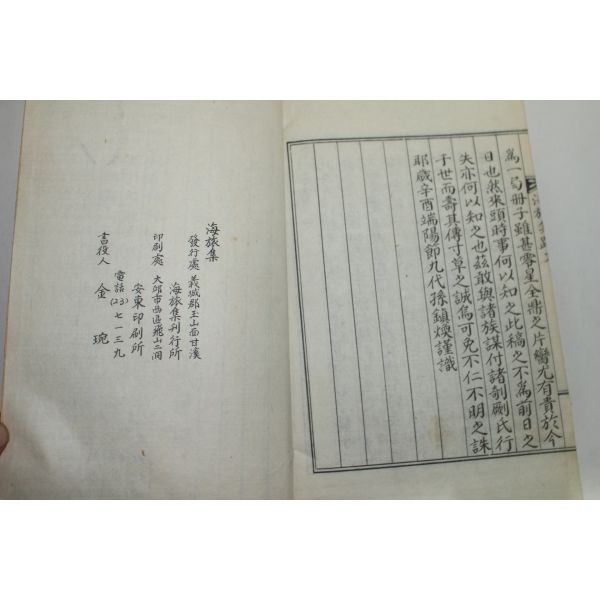 為一局冊子雖甚零星全鼎之片臠尤有貴於今
日也然來頭時事何以知之此稿之不為前日之
失亦何以知之也玆敢與諸族謀付諸剞劂氏行
于世而壽其傳子草之誠焉可免不仁不明之誅
耶歲辛酉端陽節九代孫鎮煥謹識
海旅集
發行處 義城郡玉山面甘溪
海旅集刊行所
印刷處 大邱市西區飛山二洞
安東印刷所
電話(23)七一三九
書役人 金 琬